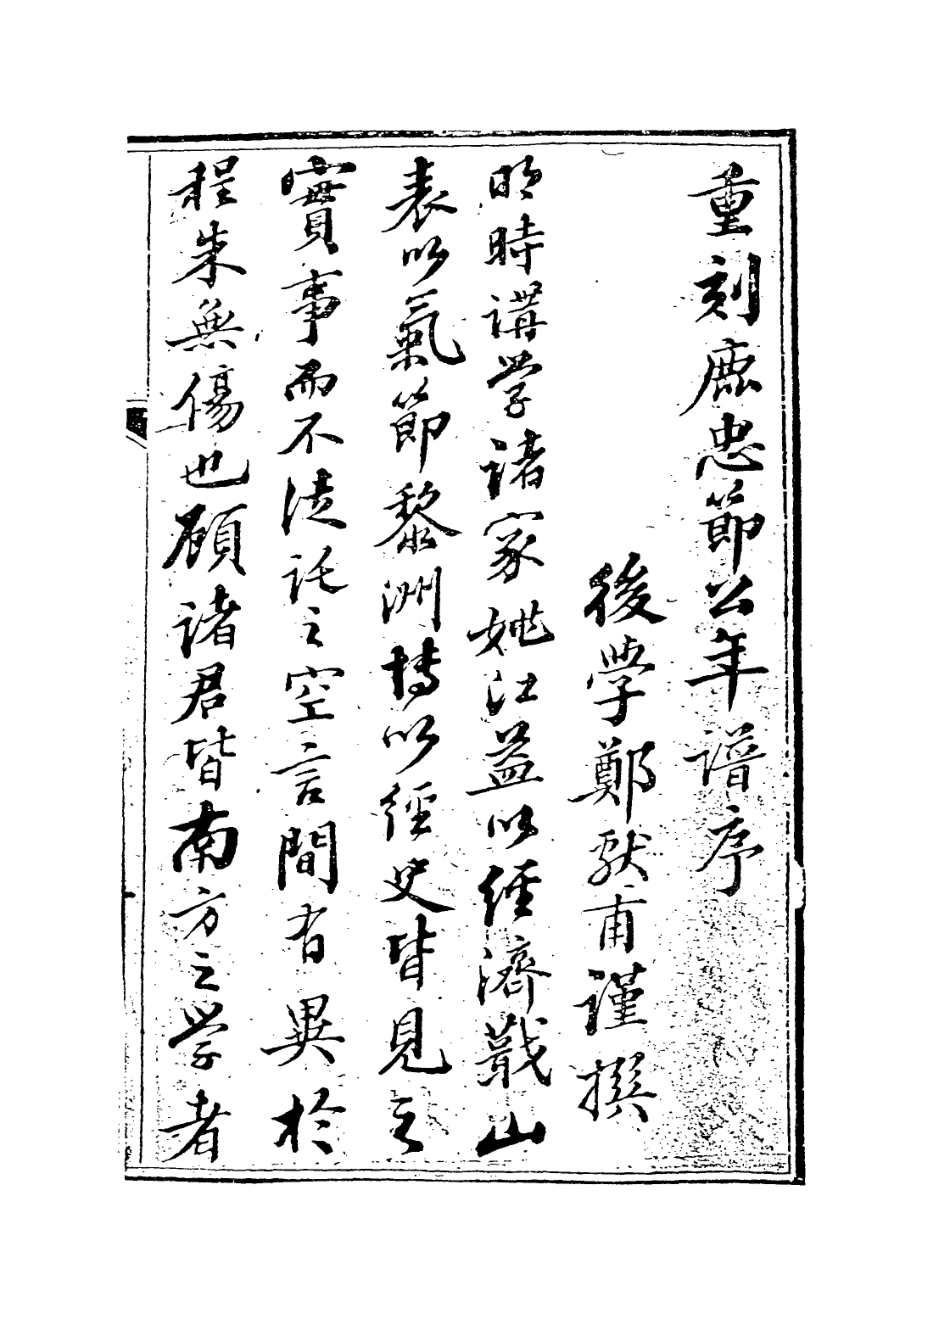 重刻鹿忠節公年譜序
後學鄭獻甫謹撰
明時講学諸家姚江益以經濟蕺山
表以氣節黎洲博以經史皆見之
實事而不徒託之空言間有異於
程朱無傷也顧諸君皆南方之学者